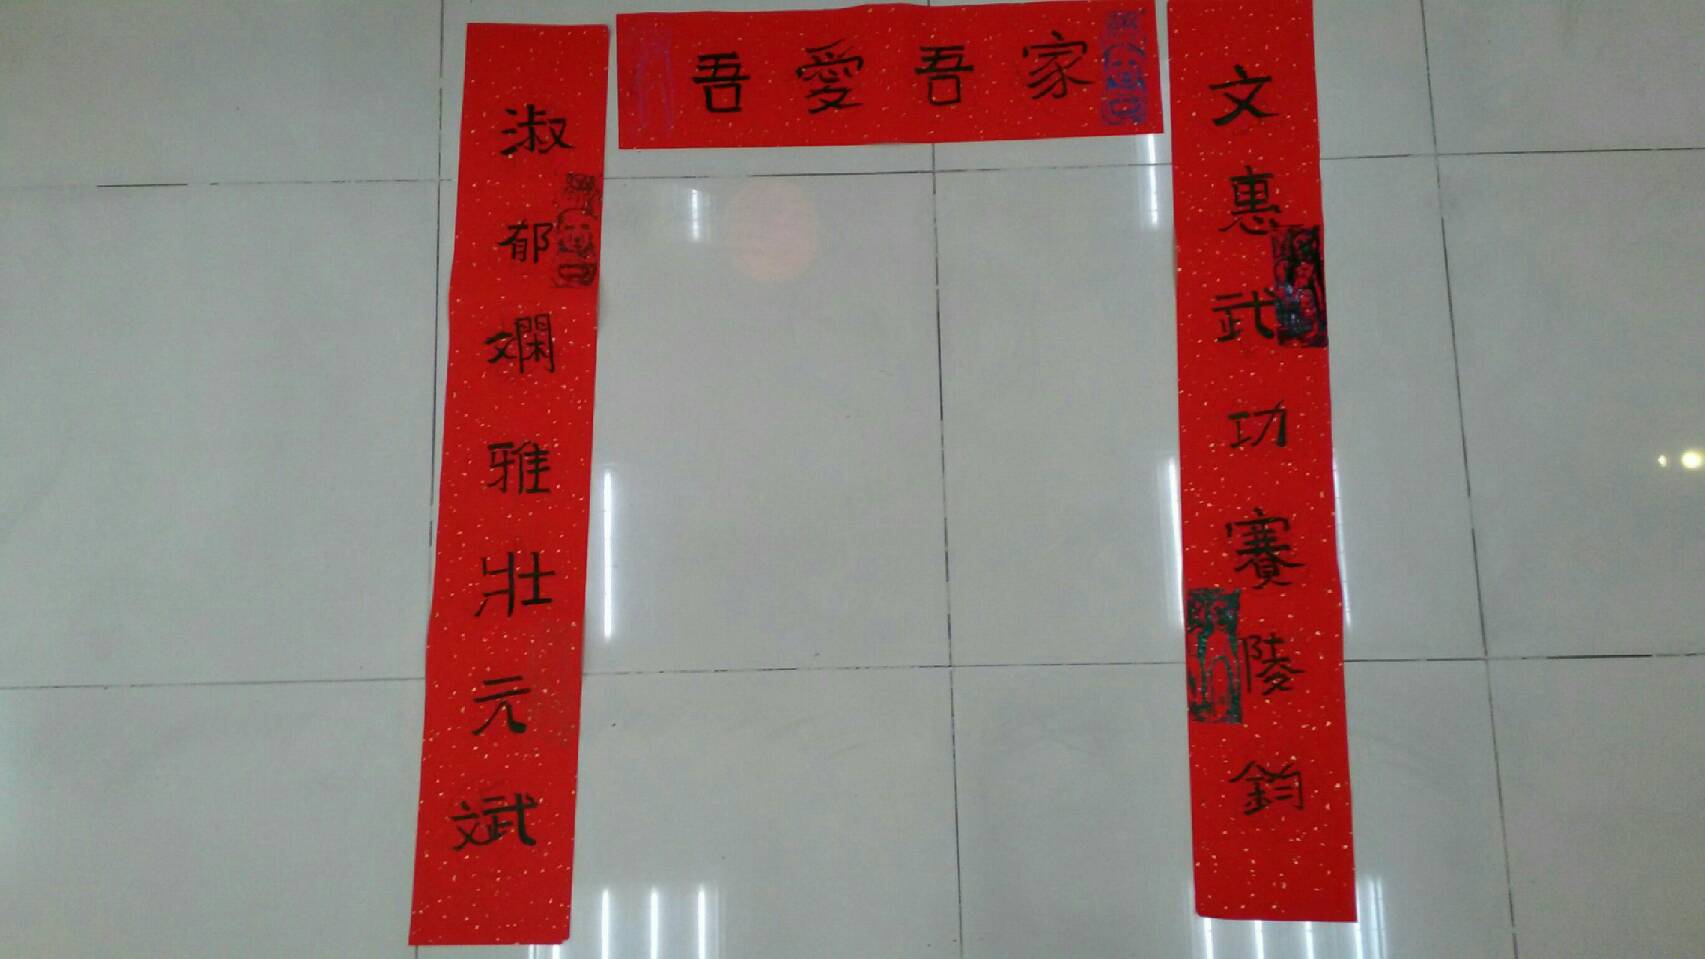 吾愛吾家
文惠武功賽陵鈞
淑郁斓雅壯元斌